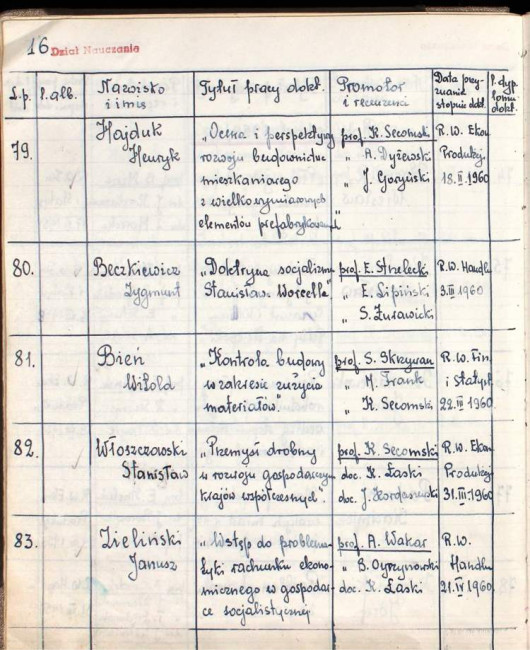 16 Dział Nauczania
L.p. L. alb. Nazwisko i imię Tytuł pracy dokt. Promotor i recenzenci Data przyznania stopnia dokt. L. dyplomu dokt.
79. Hajduk Henryk
„Ocena i perspektywy
rozwoju budownictwa
mieszkaniowego
z wielkowymiarowych
elementów prefabrykowanych"
prof. K. Secomski
„ A. Dyżewski
„ J. Goryński
R.W. Ekon.
Produkcji
18.II.1960
80. Beczkiewicz Zygmunt
„Doktryna socjalizmu
Stanisława Worcella"
prof. E. Strzelecki
„ E. Lipiński
„ S. Żurawicki
R.W. Handlu
3.III.1960
81. Bień Witold
„Kontrola budowy
w zakresie zużycia
materiałów".
prof. S. Skrzywan
„ M. Frank
„ K. Secomski
R.W. Fin.
i Statyst.
22.III.1960.
82. Włoszczowski Stanisław
„Przemysł drobny
w rozwoju gospodarczym
krajów współczesnych".
prof. K. Secomski
doc. K. Łaski
doc. J.
R.W. Ekon.
Produkcji
31.III.1960
83. Zieliński Janusz
„Wstęp do problema-
tyki rachunku ekono-
micznego w gospodar-
ce socjalistycznej
prof. A. Wakar
„ B. Oyrzanowski
doc. K. Łaski
R.W.
Handlu
21.IV.1960.